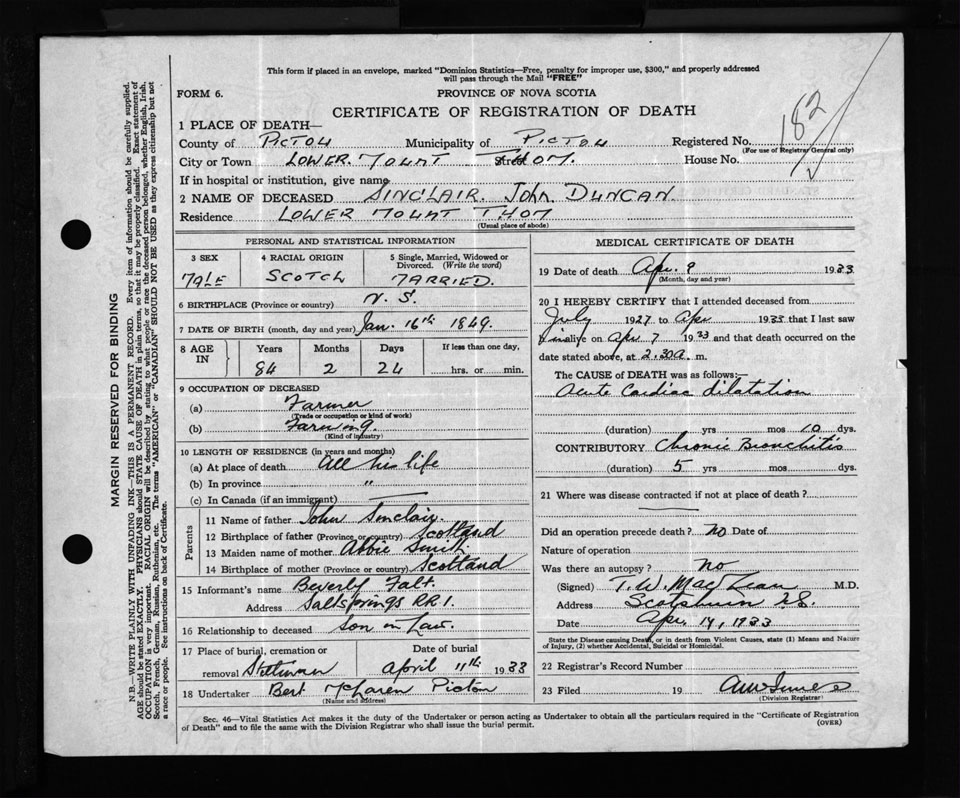 This form if placed in an envelope, marked "Dominion Statistics—Free, penalty for improper use, $300," and properly addressed
will pass through the Mail "FREE"
FORM 6.
PROVINCE OF NOVA SCOTIA
CERTIFICATE OF REGISTRATION OF DEATH
182
1 PLACE OF DEATH—
County of PICTOU Municipality of PICTOU Registered No.
(For use of Registrar General only)
City or Town LOWER MOUNT THOM. Street House No.
If in hospital or institution, give name
2 NAME OF DECEASED SINCLAIR. John DUNCAN.
Residence LOWER MOUNT THOM
(Usual place of abode)
PERSONAL AND STATISTICAL INFORMATION
3 SEX 4 RACIAL ORIGIN 5 Single, Married, Widowed or
Divorced. (Write the word)
MALE SCOTCH MARRIED.
6 BIRTHPLACE (Province or country) N. S.
7 DATE OF BIRTH (month, day and year) Jan. 16th 1849.
8 AGE IN Years Months Days If less than one day,
84 2 24 hrs. or min.
9 OCCUPATION OF DECEASED
(a) Farmer
(Trade or occupation or kind of work)
(b) Farming.
(Kind of industry)
10 LENGTH OF RESIDENCE (in years and months)
(a) At place of death All his life
(b) In province "
(c) In Canada (if an immigrant) —
Parents
11 Name of father John Sinclair.
12 Birthplace of father (Province or country) Scotland
13 Maiden name of mother Abbie Smith
14 Birthplace of mother (Province or country) Scotland
15 Informant's name Beverly
Address Saltsprings RR1.
16 Relationship to deceased Son in Law.
17 Place of burial, cremation or Date of burial
removal April 11th 1933
18 Undertaker Bert McLaren Pictou
(Name and address)
MEDICAL CERTIFICATE OF DEATH
19 Date of death Apr. 9 1933
(Month, day and year)
20 I HEREBY CERTIFY that I attended deceased from
July 1927 to Apr 1933 that I last saw
him alive on Apr 7 1933 and that death occurred on the
date stated above, at 2.30a. m.
The CAUSE of DEATH was as follows:
Acute Cardiac dilatation
(duration) yrs mos 10 dys.
CONTRIBUTORY Chronic Bronchitis
(duration) 5 yrs mos dys.
21 Where was disease contracted if not at place of death?
—
Did an operation precede death? No Date of
Nature of operation
Was there an autopsy? No
(Signed) T. W. MacLean M.D.
Address Scotsburn N.S.
Date Apr 14, 1933
State the Disease causing Death, or in death from Violent Causes, state (1) Means and Nature
of Injury, (2) whether Accidental, Suicidal or Homicidal.
22 Registrar's Record Number
23 Filed 19
(Division Registrar)
Sec. 46—Vital Statistics Act makes it the duty of the Undertaker or person acting as Undertaker to obtain all the particulars required in the "Certificate of Registration
of Death" and to file the same with the Division Registrar who shall issue the burial permit.
(OVER)
MARGIN RESERVED FOR BINDING
N.B.—WRITE PLAINLY WITH UNFADING INK—THIS IS A PERMANENT RECORD. Every item of information should be carefully supplied.
AGE should be stated EXACTLY. PHYSICIANS should STATE CAUSE OF DEATH in plain terms, so that it may be properly classified. Exact statement of
OCCUPATION is very important. RACIAL ORIGIN will be described by stating to what people or race the deceased person belonged, whether English, Irish,
Scotch, French, German, Russian, Ruthenian, etc. The terms "AMERICAN" or "CANADIAN" SHOULD NOT BE USED as they express citizenship but not
a race or people. See instructions on back of Certificate.